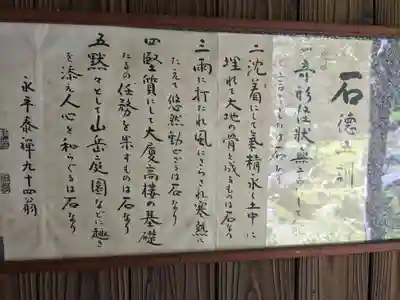 石
徳五訓
一奇形怪状無言にして
言うものは石なり
二沈着にして気精永く土中に
埋れて大地の骨と成るものは石なり
三雨に打たれ風にさらされ寒熱に
たえて悠然動ぜざるは石なり
四堅質にして大厦高楼の基礎
たるの任務を果すものは石なり
五黙々として山岳庭園などに趣き
を添え人心を和らぐるは石なり
永平泰禅九十四翁